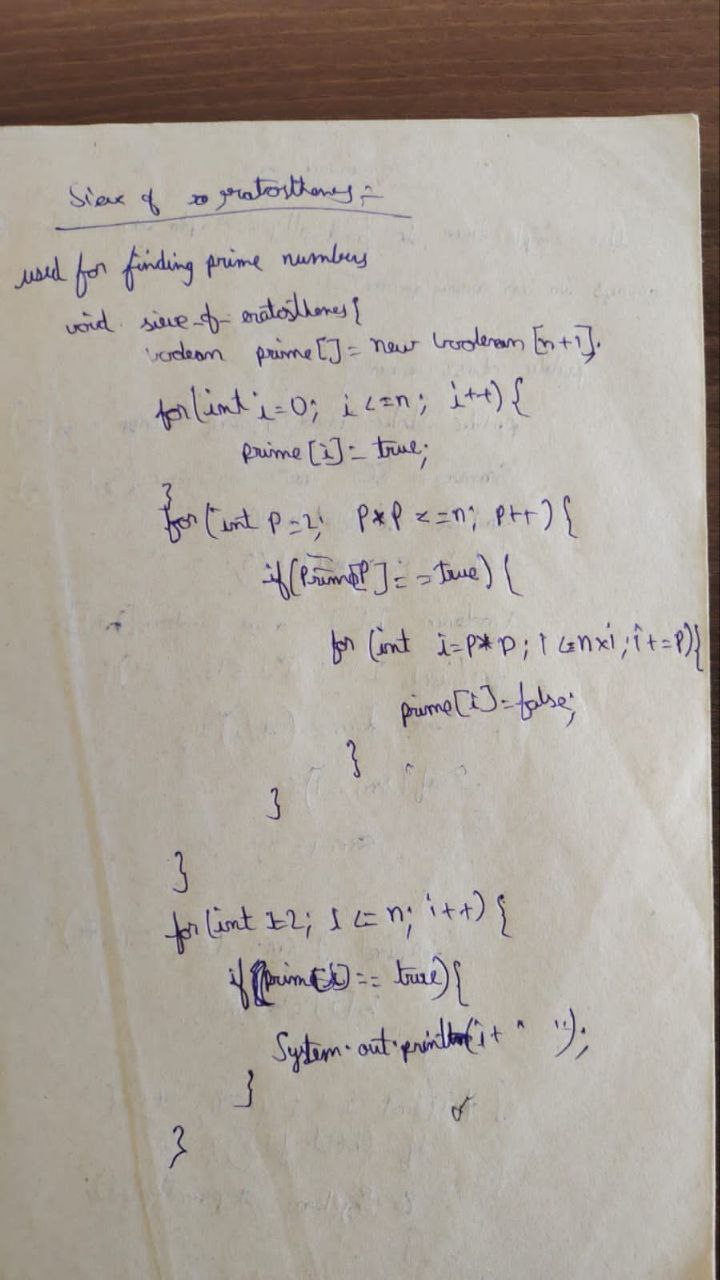 Sieve of eratosthenes:-
used for finding prime numbers
void sieve-of-eratosthenes{
boolean prime[]= new boolean [n+1].
for(int i=0; i<=n; i++){
prime[i]= true;
}
for(int P=2; P*P <=n; P++){
if(Prime[P]==true){
for (int i=P*P; i<=n*i; i+=P){
prime[i]=false;
}
}
}
for(int i=2; i<=n; i++){
if(prime[i]== true){
System.out.println(i+" ");
}
}